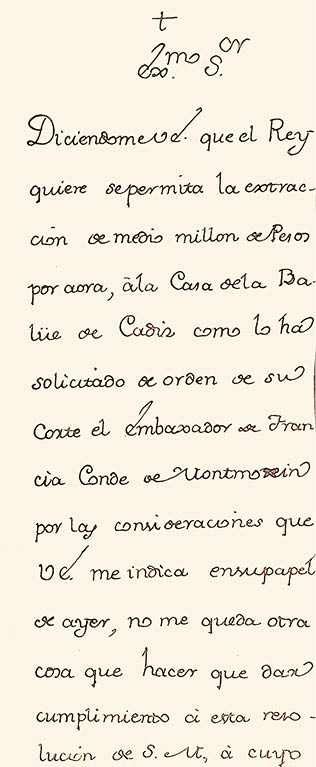 +
Exmo. Sor.
Diciendome V.E. que el Rey
quiere se permita la extrac-
ción de medio millon de Pesos
por aora, à la Casa de la Ba-
lüe de Cadiz como lo há
solicitado de orden de su
Corte el Embaxador de Fran
cia Conde de Montmorin
por las consideraciones que
V.E. me indica en su papel
de ayer, no me queda otra
cosa que hacer que dar
cumplimiento à esta reso-
lución de S. M, à cuyo